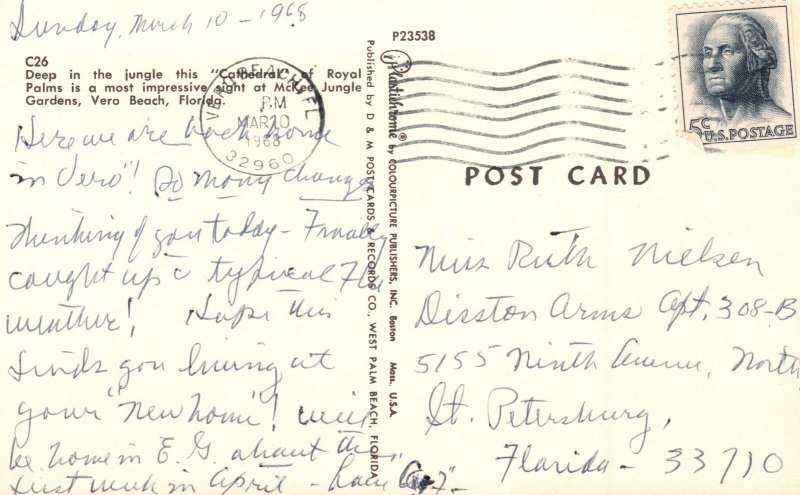 Sunday, March 10 - 1968
C26
Deep in the jungle this "Cathedral" of Royal
Palms is a most impressive sight at McKee Jungle
Gardens, Vero Beach, Florida.
Here we are back home
in Vero"! So many changes
Thinking of you today - Finally
caught up c̄ typical Fla
weather! Hope this
finds you living at
your "new home"! will
be home in E. G. about the
first week in April - Love
Published by D & M POST CARDS & RECORDS CO., WEST PALM BEACH, FLORIDA
Plastichrome® by COLOURPICTURE PUBLISHERS, INC. Boston Mass. U.S.A.
P23538
VERO BEACH, FL
PM
MAR 10
1968
32960
5c
U.S. POSTAGE
POST CARD
Miss Ruth Nielsen
Disston Arms Apt. 308-B
5155 Ninth Avenue, North
St. Petersburg,
Florida - 33710